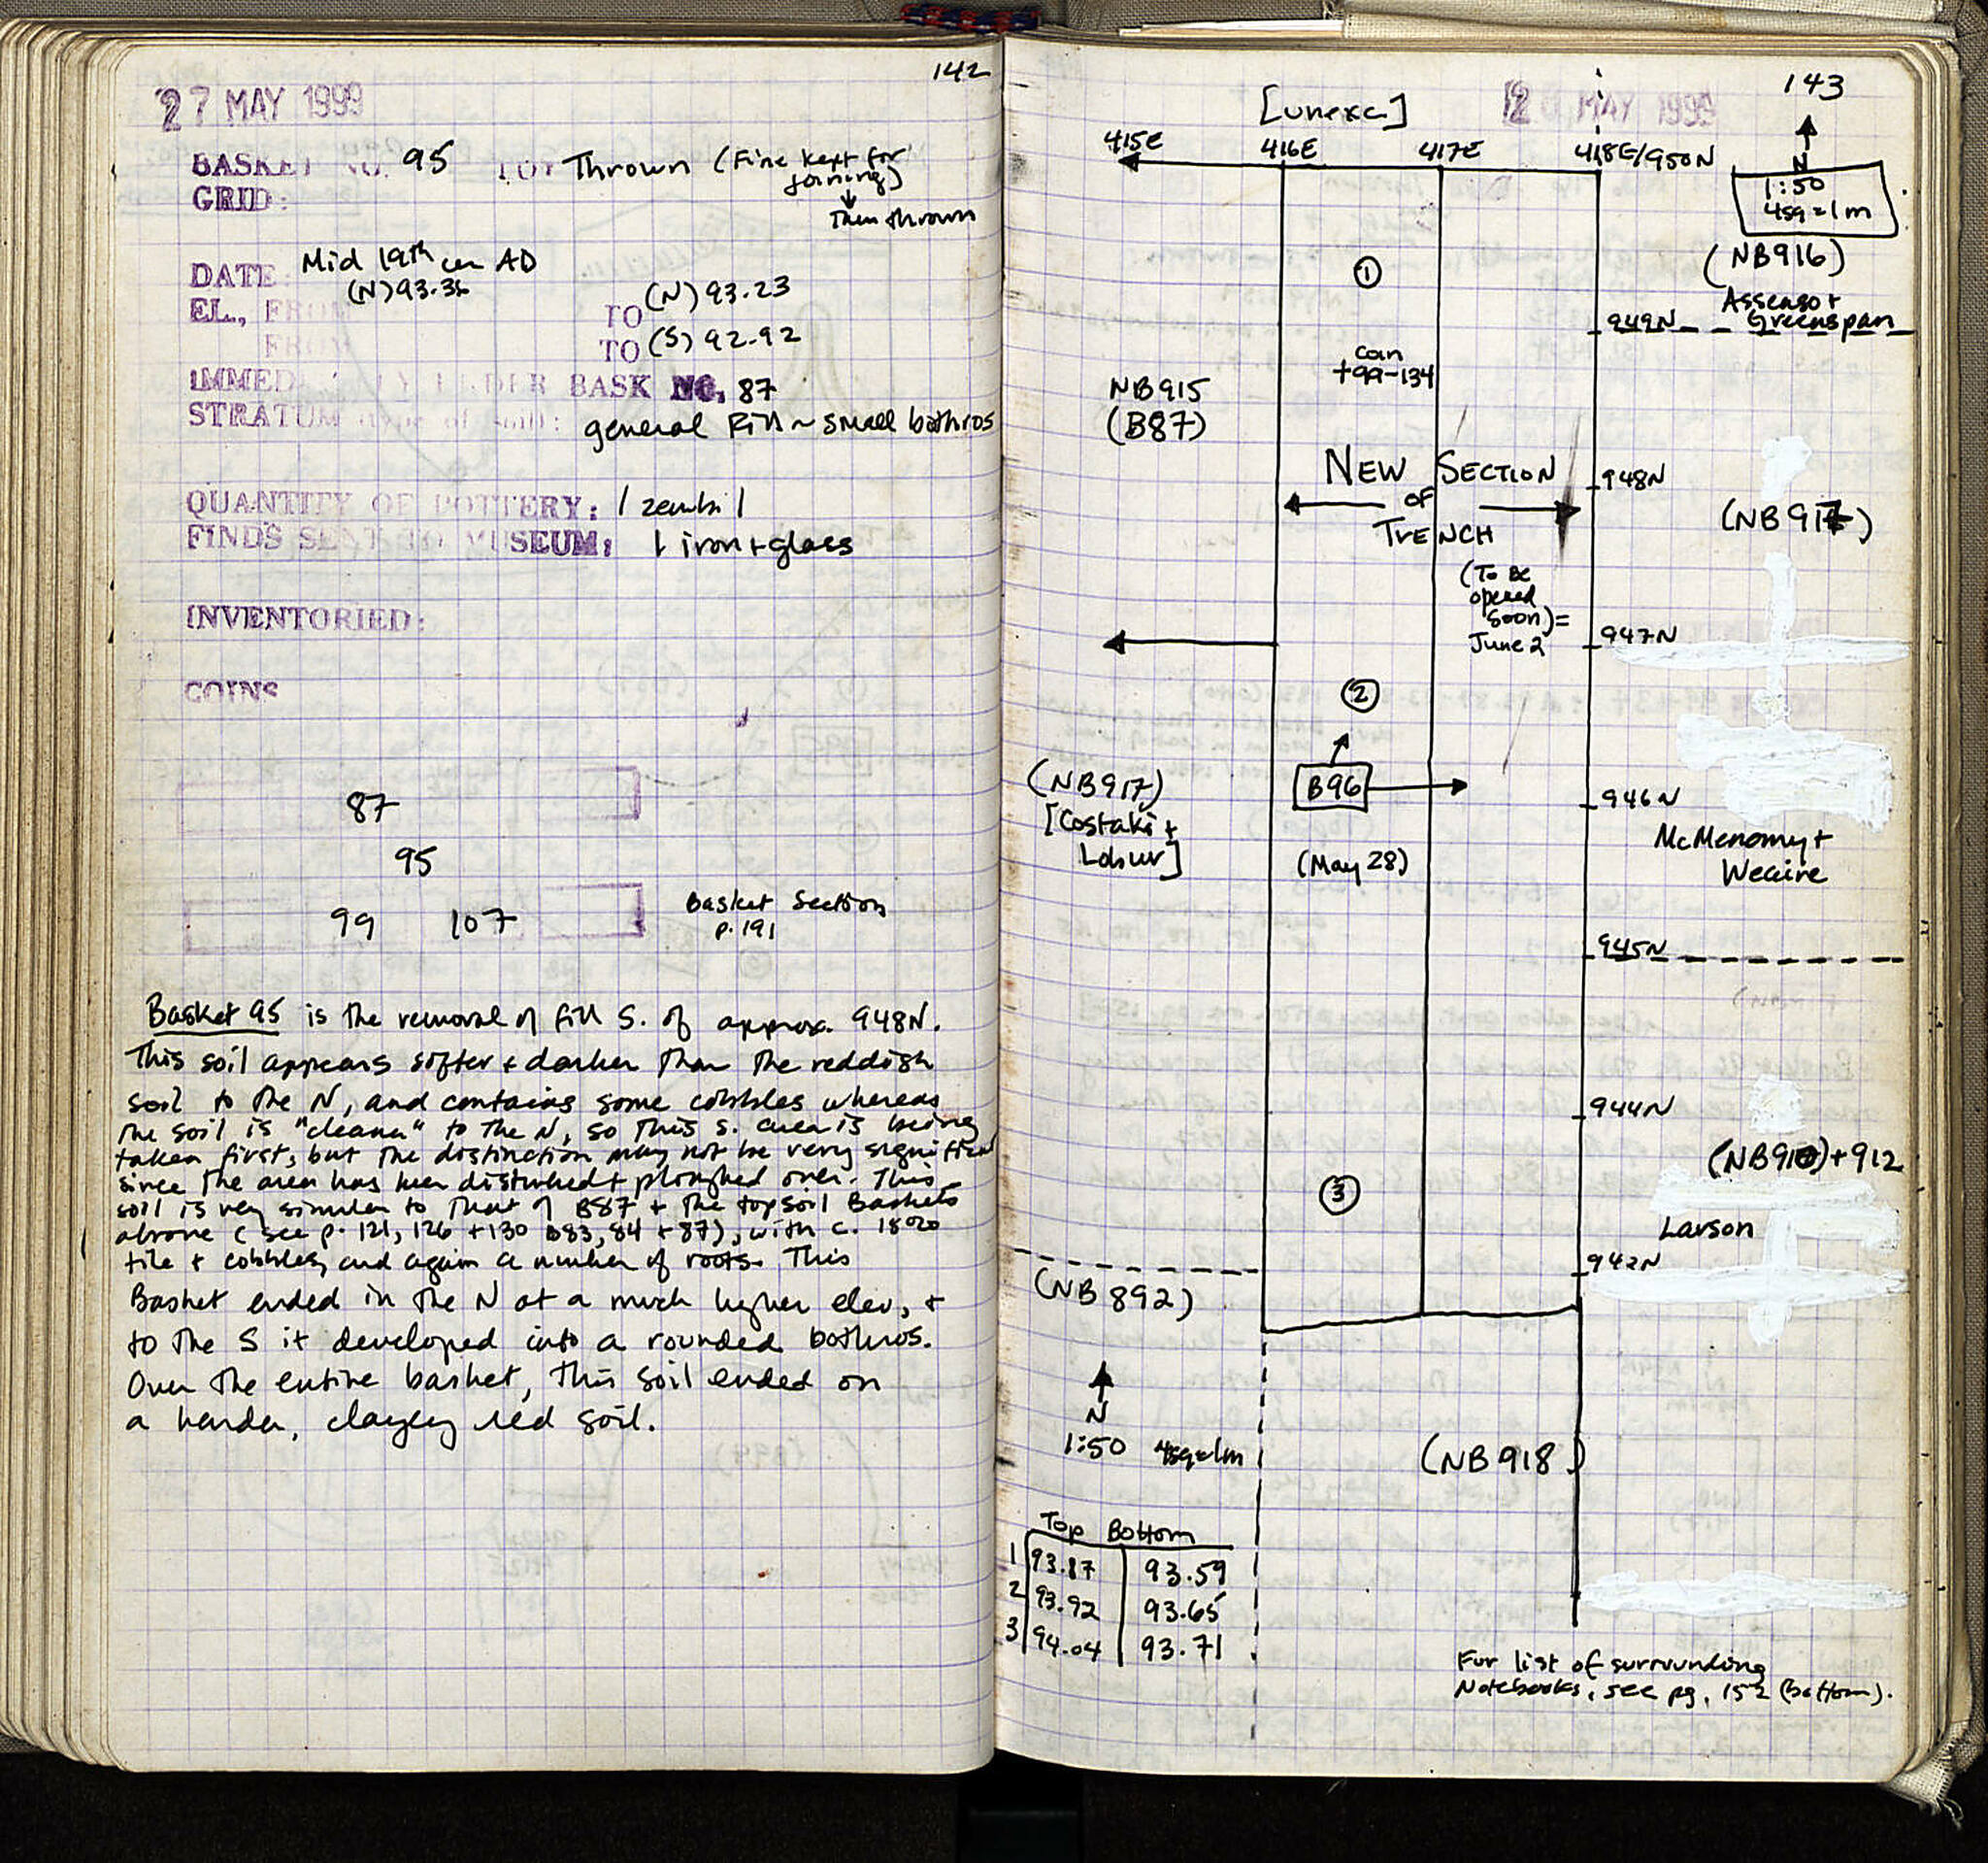 142
27 MAY 1999
BASKET NO. 95 LOT Thrown (Fine kept for joining)
↓
Then thrown
GRID:
DATE: Mid 19th cen AD
EL., FROM (N) 93.36 TO (N) 93.23
FROM TO (S) 92.92
IMMEDIATELY UNDER BASK NO. 87
STRATUM (type of soil): general Fill ~ small bothros
QUANTITY OF POTTERY: 1 zembil
FINDS SENT TO MUSEUM: 1 iron + glass
INVENTORIED:
COINS
87
95
99 107
Basket Section
p. 191
Basket 95 is the removal of fill S. of approx. 948N.
This soil appears softer + darker than the reddish
soil to the N, and contains some cobbles whereas
the soil is "cleaner" to the N, so this S. area is being
taken first, but the distinction may not be very significant
since the area has been disturbed + ploughed over. This
soil is very similar to that of B87 + the topsoil Baskets
above (see p. 121, 126 + 130 B83, 84 + 87), with c. 18%
tile + cobbles, and again a number of roots. This
Basket ended in the N at a much higher elev, +
to the S it developed into a rounded bothros.
Over the entire basket, this soil ended on
a harder, clayey red soil.
143
MAY 1999
[unexc]
415E 416E 417E 418E/950N
N
1:50
4sq=1m
(NB916)
Greenspan
949N
①
coin
+99-134
NB915
(B87)
NEW SECTION
OF
TRENCH
948N
(NB917)
(To Be
opened
soon)=
June 2
947N
②
B96
(NB917)
[Costaki +
946N
McMenomy +
(May 28)
945N
944N
(NB910)+912
③
Larson
943N
(NB892)
N
1:50 4sq=1m
(NB918)
Top Bottom
1 93.87 93.59
2 93.92 93.65
3 94.04 93.71
For list of surrounding
Notebooks, see pg. 152 (bottom).